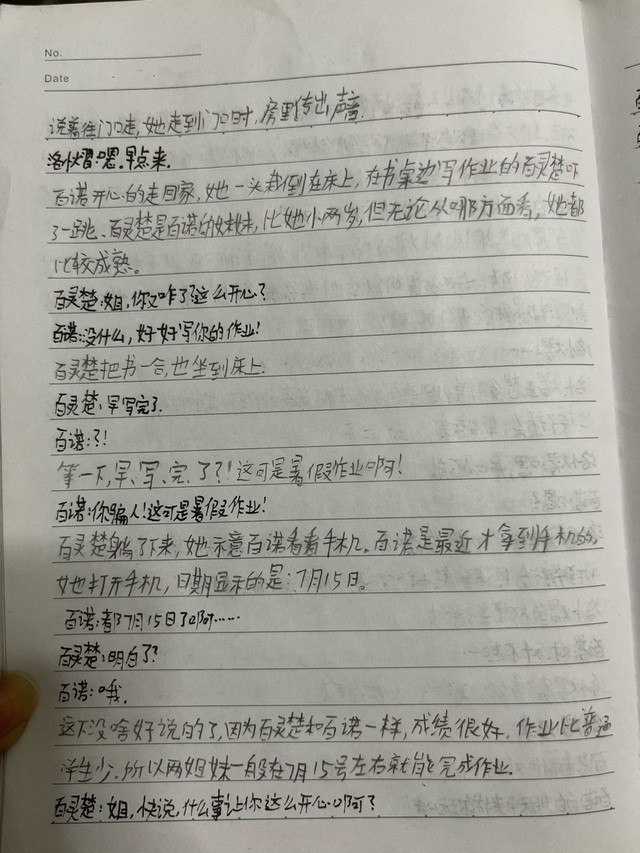 No.
Date
说着往门口走,她走到门口时,房里传出声音.
洛伙習:嗯.早点来.
百诺开心的走回家,她一头栽倒在床上,在书桌边写作业的百灵楚吓
了一跳、百灵楚是百诺的妹妹,比她小两岁,但无论从哪方面看,她都
比较成熟。
百灵楚:姐,你又咋了这么开心?
百诺:没什么,好好写你的作业!
百灵楚把书一合,也坐到床上.
百灵楚:早写完了.
百诺:?!
等一下,早、写、完、了?!这可是暑假作业啊!
百诺:你骗人!这可是暑假作业!
百灵楚躺了下来,她示意百诺看看手机。百诺是最近才拿到手机的,
她打开手机,日期显示的是:7月15日。
百诺:都7月15日了啊……
百灵楚:明白了?
百诺:哦.
这下没啥好说的了,因为百灵楚和百诺一样,成绩很好,作业比普通
学生少.所以两姐妹一般在7月15号左右就能完成作业.
百灵楚:姐,快说,什么事让你这么开心啊?